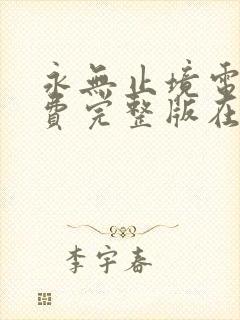 永無止境電
費完整版在
李宇春